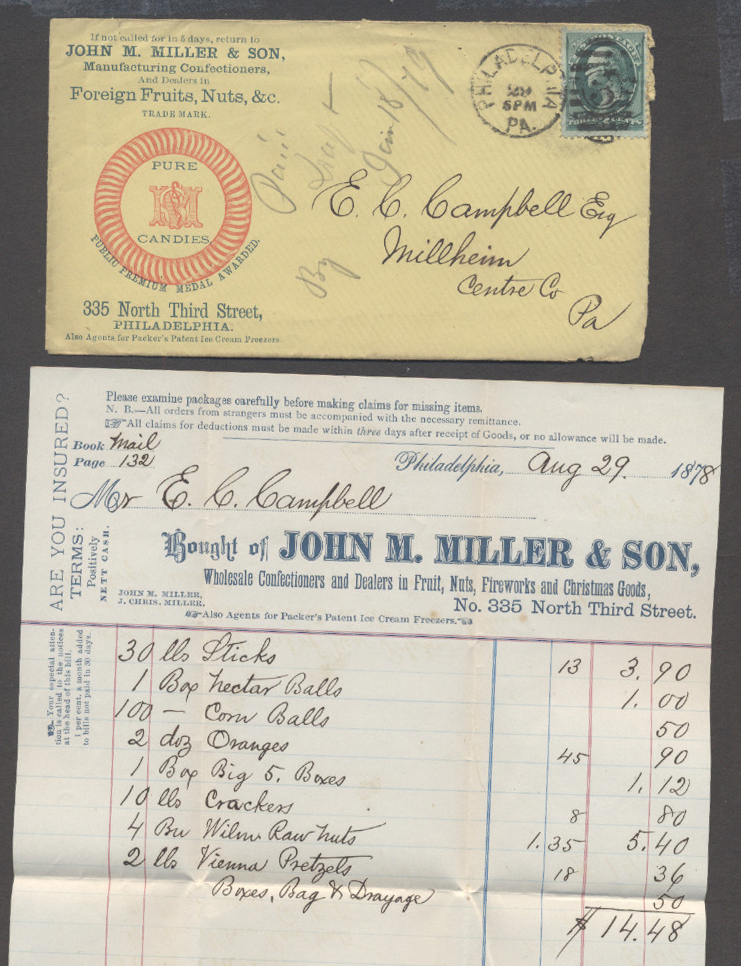 If not called for in 5 days, return to
JOHN M. MILLER & SON,
Manufacturing Confectioners,
And Dealers in
Foreign Fruits, Nuts, &c.
TRADE MARK.
PURE
M
CANDIES
PUBLIC PREMIUM MEDAL AWARDED.
335 North Third Street,
PHILADELPHIA.
Also Agents for Packer's Patent Ice Cream Freezers.
Paid
Jan 18/79
By
PHILADELPHIA
5 PM
PA.
THREE CENTS
E. C. Campbell Esq
Millheim
Centre Co
Pa
Please examine packages carefully before making claims for missing items.
N. B.—All orders from strangers must be accompanied with the necessary remittance.
☞All claims for deductions must be made within three days after receipt of Goods, or no allowance will be made.
ARE YOU INSURED?
TERMS:
Positively
NETT CASH.
Book Mail
Page 132
Philadelphia, Aug 29. 1878
Mr E. C. Campbell
Bought of JOHN M. MILLER & SON,
Wholesale Confectioners and Dealers in Fruit, Nuts, Fireworks and Christmas Goods,
JOHN M. MILLER,
J. CHRIS. MILLER.
No. 335 North Third Street.
☞Also Agents for Packer's Patent Ice Cream Freezers.☜
☞ Your especial atten-
tion is called to the notices
at the head of this bill.
1 per cent. a month added
to bills not paid in 30 days.
30 lbs Sticks 13 3.90
1 Box Nectar Balls 1.00
100 — Corn Balls 50
2 doz Oranges 45 90
1 Box Big 5. Boxes 1.12
10 lbs Crackers 8 80
4 Bu Wilm Raw nuts 1.35 5.40
2 lbs Vienna Pretzels 18 36
Boxes, Bag & Drayage 50
$ 14.48